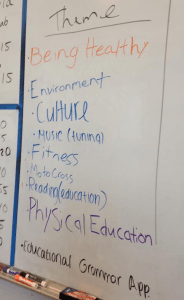 Theme
·Being Healthy
·Environment
·Culture
·Music (tuning)
·Fitness
·MotoCross
·Reading (education)
·Physical Education
·Educational Grammar App.
15
15
20